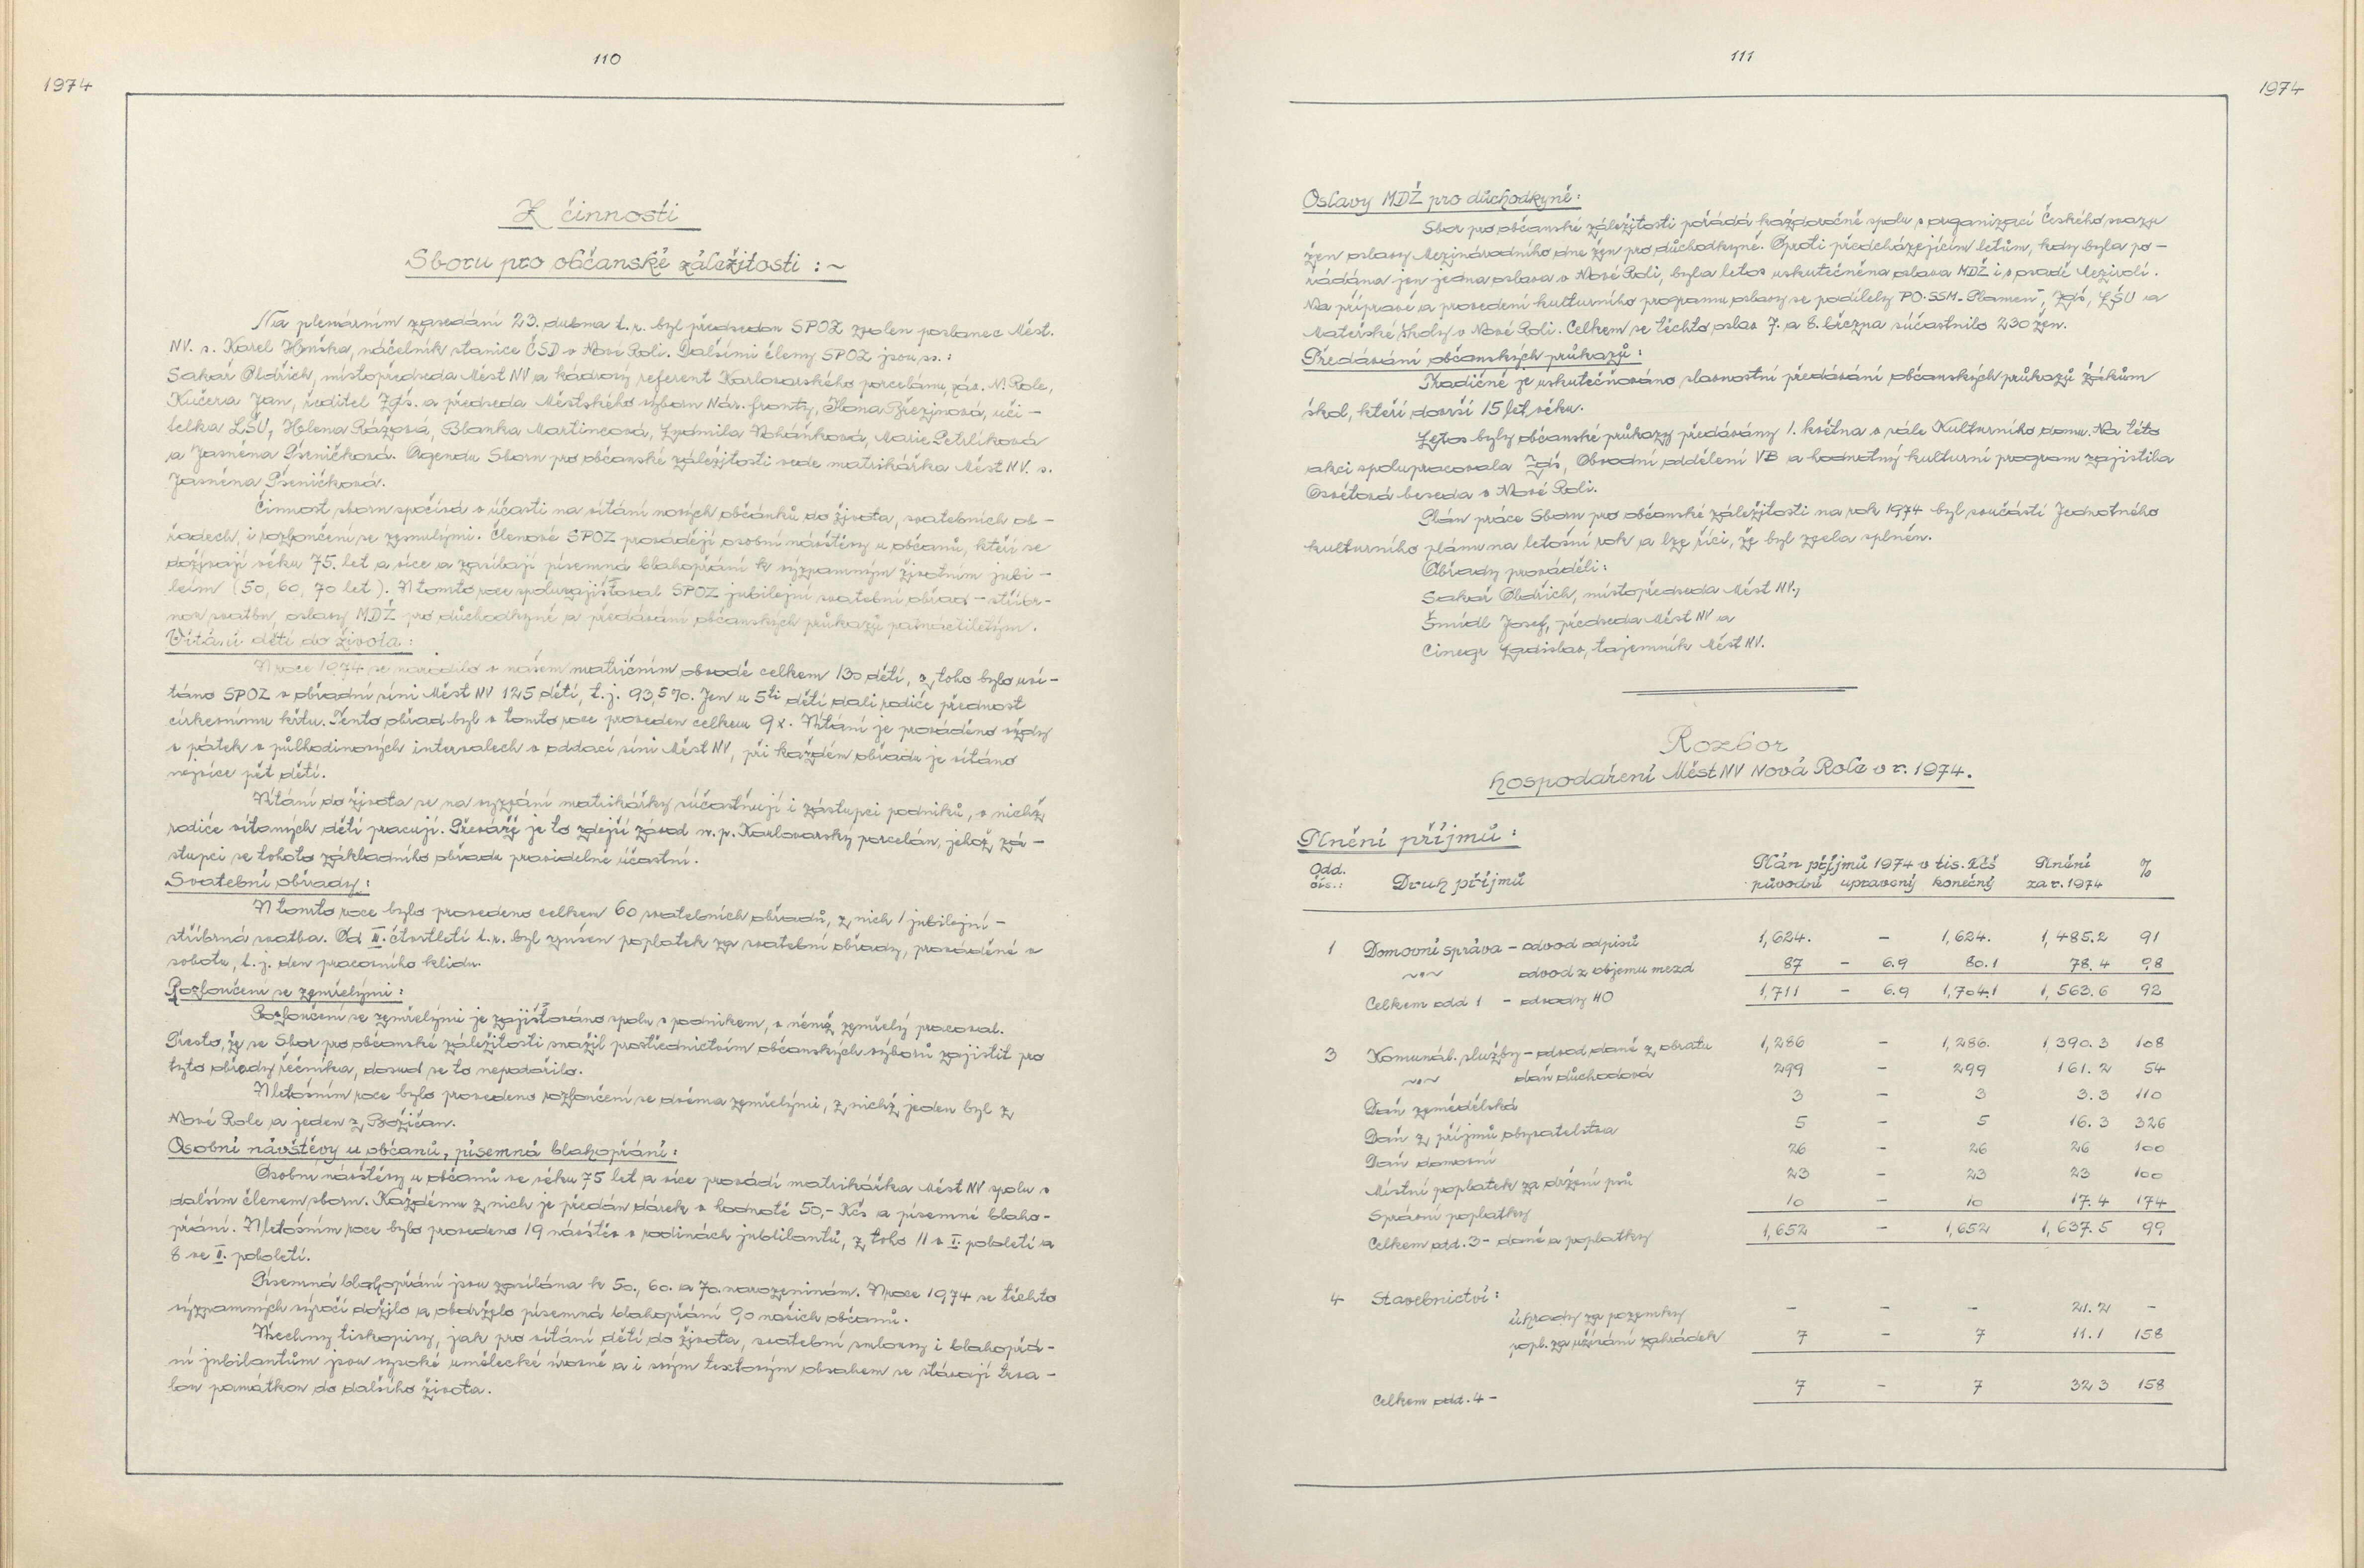 110
1974
Z činnosti
Sboru pro občanské záležitosti : ~
Na plenárním zasedání 23. dubna t. r. byl předsedou SPOZ zvolen poslanec Měst.
NV. s. Karel Hruška, náčelník stanice ČSD v Nové Roli. Dalšími členy SPOZ jsou ss. :
Sakař Oldřich, místopředseda Měst NV a kádrový referent Karlovarského porcelánu, záv. N. Role,
Kučera Jan, ředitel Zdš. a předseda Městského výboru Nár. fronty, Ilona Březinová, uči -
telka LŠU, Helena Rázová, Blanka Martincová, Ludmila Voháňková, Marie Petrlíková
a Jasněna Pšeničková. Agendu Sboru pro občanské záležitosti vede matrikářka Měst NV. s.
Jasněna Pšeničková.
Činnost sboru spočívá v účasti na vítání nových občánků do života, svatebních ob -
řadech, i rozloučení se zesnulými. Členové SPOZ provádějí osobní návštěvy u občanů, kteří se
dožívají věku 75. let a více a zasílají písemná blahopřání k významným životním jubi -
leím (50, 60, 70 let). V tomto roce spoluzajišťoval SPOZ jubilejní svatební obřad - stříbr-
nou svatbu, oslavy MDŽ pro důchodkyně a předávání občanských průkazů patnáctiletým.
Vítání dětí do života :
V roce 1974 se narodilo v našem matričním obvodě celkem 130 dětí, z toho bylo uví -
táno SPOZ v obřadní síni Měst NV 125 dětí, t. j. 93,5%. Jen u 5ti dětí dali rodiče přednost
církevnímu křtu. Tento obřad byl v tomto roce proveden celkem 9 x. Vítání je prováděno vždy
v pátek v půlhodinových intervalech v oddací síni Měst NV, při každém obřadu je vítáno
nejvíce pět dětí.
Vítání do života se na vyzvání matrikářky súčastňují i zástupci podniků, v nichž
rodiče vítaných dětí pracují. Převážně je to zdejší závod n. p. Karlovarský porcelán, jehož zá -
stupci se tohoto základního obřadu pravidelně účastní.
Svatební obřady :
V tomto roce bylo provedeno celkem 60 svatebních obřadů, z nich 1 jubilejní -
stříbrná svatba. Od II. čtvrtletí t. r. byl zrušen poplatek za svatební obřady, prováděné v
sobotu, t. j. den pracovního klidu.
Rozloučení se zemřelými :
Rozloučení se zemřelými je zajišťováno spolu s podnikem, v němž zemřelý pracoval.
Přesto, že se Sbor pro občanské záležitosti snažil prostřednictvím občanských výborů zajistit pro
tyto obřady řečníka, dosud se to nepodařilo.
V letošním roce bylo provedeno rozloučení se dvěma zemřelými, z nichž jeden byl z
Nové Role a jeden z Božičan.
Osobní návštěvy u občanů, písemná blahopřání :
Osobní návštěvy u občanů ve věku 75 let a více provádí matrikářka Měst NV spolu s
dalším členem sboru. Každému z nich je předán dárek v hodnotě 50,- Kčs a písemné blaho-
přání. V letošním roce bylo provedeno 19 návštěv v rodinách jubilantů, z toho 11 v I. pololetí a
8 ve II. pololetí.
Písemná blahopřání jsou zasílána k 50., 60. a 70. narozeninám. V roce 1974 se těchto
významných výročí dožilo a obdrželo písemná blahopřání 90 našich občanů.
Všechny tiskopisy, jak pro vítání dětí do života, svatební smlouvy i blahopřá -
ní jubilantům jsou vysoké umělecké úrovně a i svým textovým obsahem se stávají trva -
lou památkou do dalšího života.
111
1974
Oslavy MDŽ pro důchodkyně :
Sbor pro občanské záležitosti pořádá každoročně spolu s organizací Českého svazu
žen oslavy Mezinárodního dne žen pro důchodkyně. Oproti předcházejícím letům, kdy byla po -
řádána jen jedna oslava v Nové Roli, byla letos uskutečněna oslava MDŽ i v osadě Mezirolí.
Na přípravě a provedení kulturního programu oslavy se podílely PO. SSM - Plamen", Zdš, LŠU a
Mateřské školy v Nové Roli. Celkem se těchto oslav 7. a 8. března súčastnilo 230 žen.
Předávání občanských průkazů :
Tradičně je uskutečňováno slavnostní předávání občanských průkazů žákům
škol, kteří dovrší 15 let věku.
Letos byly občanské průkazy předávány 1. května v sále Kulturního domu. Na této
akci spolupracovala Zdš, Obvodní oddělení VB a hodnotný kulturní program zajistila
Osvětová beseda v Nové Roli.
Plán práce Sboru pro občanské záležitosti na rok 1974 byl součástí Jednotného
kulturního plánu na letošní rok a lze říci, že byl zcela splněn.
Obřady prováděli :
Sakař Oldřich, místopředseda Měst NV.,
Šmídl Josef, předseda Měst NV a
Cinegr Ladislav, tajemník Měst NV.
Rozbor
hospodaření Měst NV Nová Role v r. 1974.
Plnění příjmů :
Odd. čís.: Druh příjmů Plán příjmů 1974 v tis. Kčs Plnění %
původní upravený konečný za r. 1974
1 Domovní správa - odvod odpisů 1,624. - 1,624. 1,485.2 91
~"~ odvod z objemu mezd 87 - 6.9 80.1 78.4 98
Celkem odd 1 - odvody HO 1,711 - 6.9 1,704.1 1,563.6 92
3 Komunál. služby - odvod daně z obratu 1,286 - 1,286. 1 390.3 108
~"~ daň důchodová 299 - 299 161.2 54
Daň zemědělská 3 - 3 3.3 110
Daň z příjmů obyvatelstva 5 - 5 16.3 326
Daň domovní 26 - 26 26 100
Místní poplatek za držení psů 23 - 23 23 100
Správní poplatky 10 - 10 17.4 174
Celkem odd. 3 - daně a poplatky 1,652 - 1,652 1,637.5 99
4 Stavebnictví :
úhrady za pozemky - - - 21.2 -
popl. za užívání zahrádek 7 - 7 11.1 158
Celkem odd. 4 - 7 - 7 32 3 158